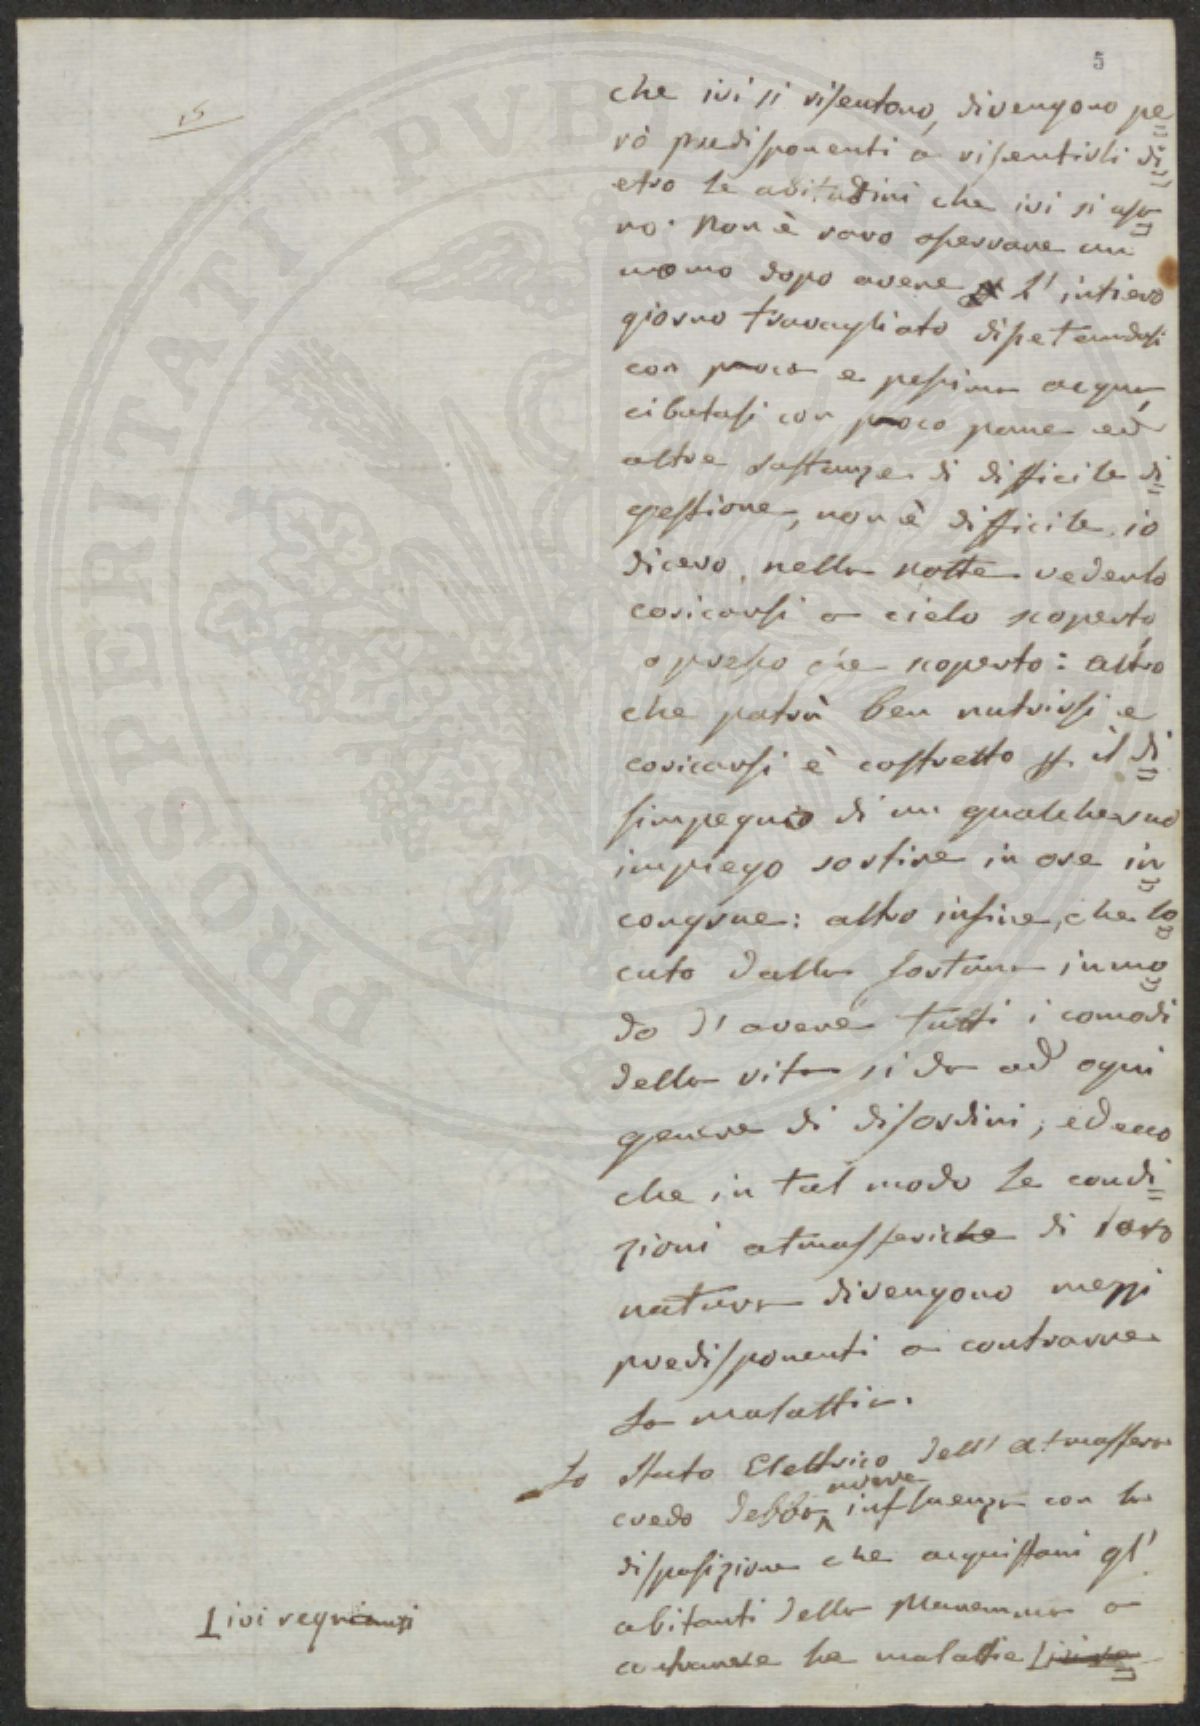 5
15
che ivi si risentono, divengono pe=
rò predisponenti a risentirli di=
etro le abitudini che ivi si a
no. Non è raro osservare un
uomo dopo avere l'intiero
giorno travagliato dissetandosi
con poca e pessima acqua,
cibatasi con poco pane ed
altre sostanze di difficile di=
gestione, non è difficile, io
dicevo, nella notte vederlo
coricarsi a cielo scoperto,
o presso che scoperto: altro
che potrà ben nutrirsi e
coricarsi è costretto p. il di=
simpegnio di un qualche suo
impiego sortire in ore in=
congrue: altro infine, che lo=
cato dalla fortuna in mo=
do d'avere tutti i comodi
della vita si da ad ogni
genere di disordini; ed ecco
che in tal modo le condi=
zioni atmasferiche di loro
natura divengono mezzi
predisponenti a contrarre
la malattia.
Lo Stato Elettrico dell'atmasfera
avere
credo debba influenza con la
disposizione che acquistani gl'
abitanti della Maremma a
contrarre le malattie
ivi regnanti
PUBLICAE
PROSPERITATI